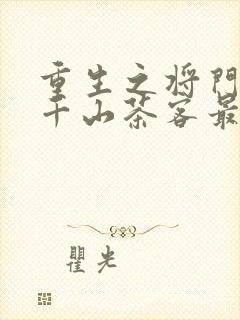 重生之将门
千山茶客最
瞿光